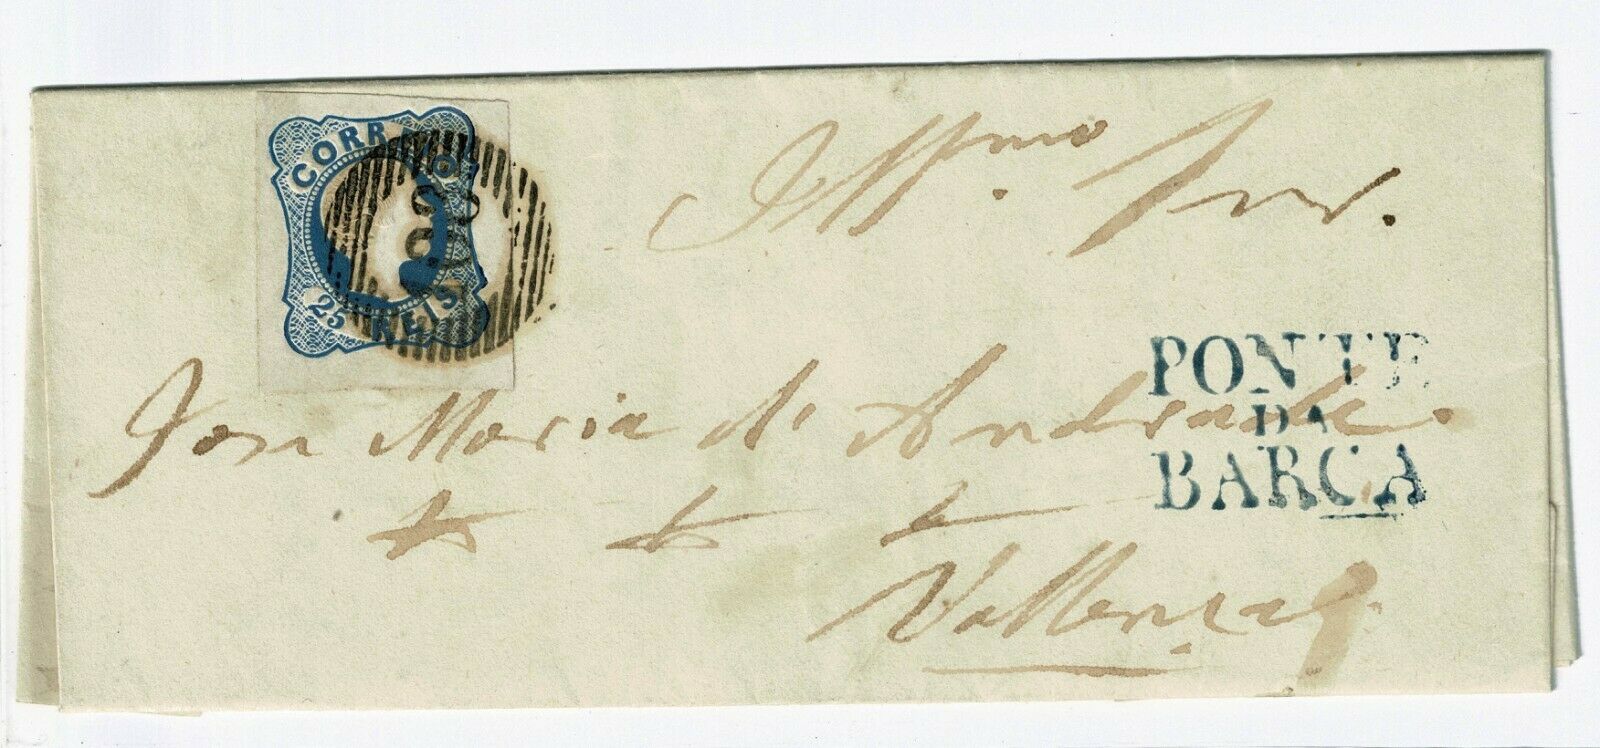 CORREIO
25 REIS
Ill.mo Snr.
PONTE
DA
BARCA
Jose Maria d' Andrade.
Vallença